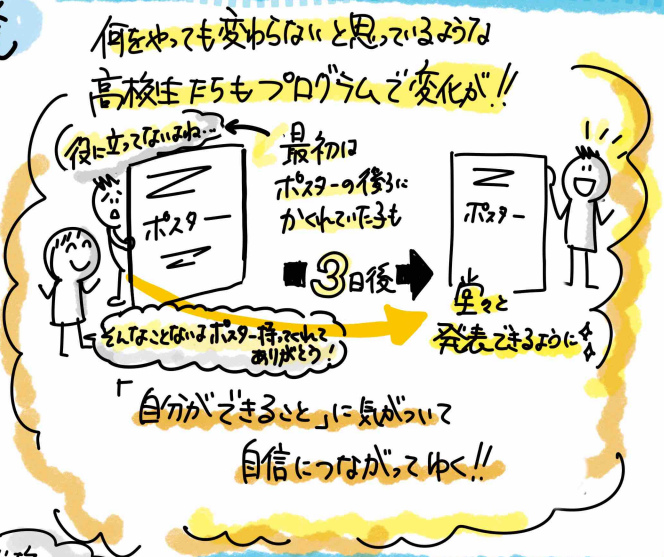 何をやっても変わらないと思っているような
高校生たちもプログラムで変化が!!
役に立ってないよね...
最初は
ポスターの後ろに
かくれていた子も
ポスター
3日後
ポスター
堂々と
発表できるように
そんなことないよポスター持ってくれて
ありがとう!
「自分ができること」に気がついて
自信につながってゆく!!